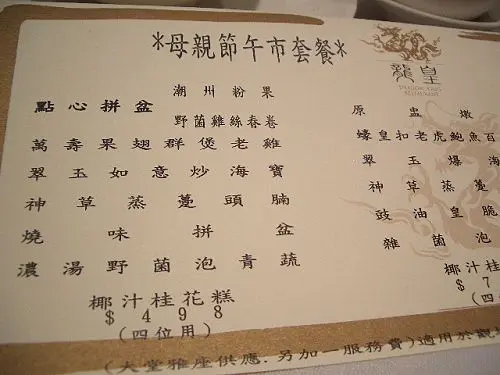 *母親節午市套餐*
龍皇
DRAGON KING
RESTAURANT
點心拼盆
潮州粉果
野菌雞絲春卷
萬壽果翅群煲老雞
翠玉如意炒海寶
神草蒸躉頭腩
燒味拼盆
濃湯野菌泡青蔬
椰汁桂花糕
$498
(四位用)
原盅燉
蠔皇扣老虎鮑魚百
翠玉爆海
神草蒸躉
豉油皇脆
雜菌泡
椰汁桂
$7
(四
(大堂雅座供應.另加一服務費)適用於觀